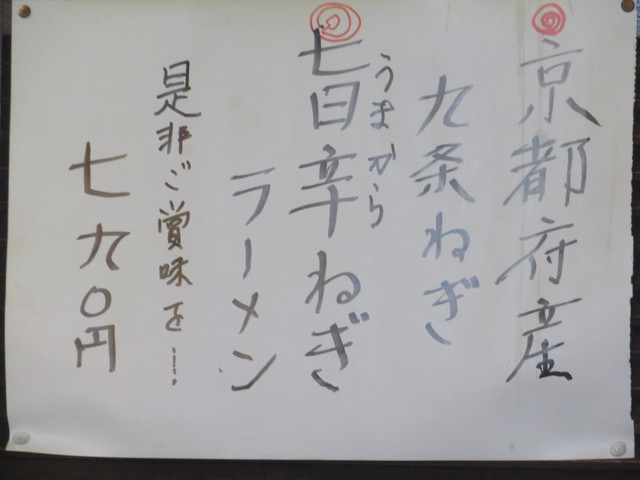 京都府産
九条ねぎ
うまから
旨辛ねぎ
ラーメン
是非ご賞味を….
七九〇円